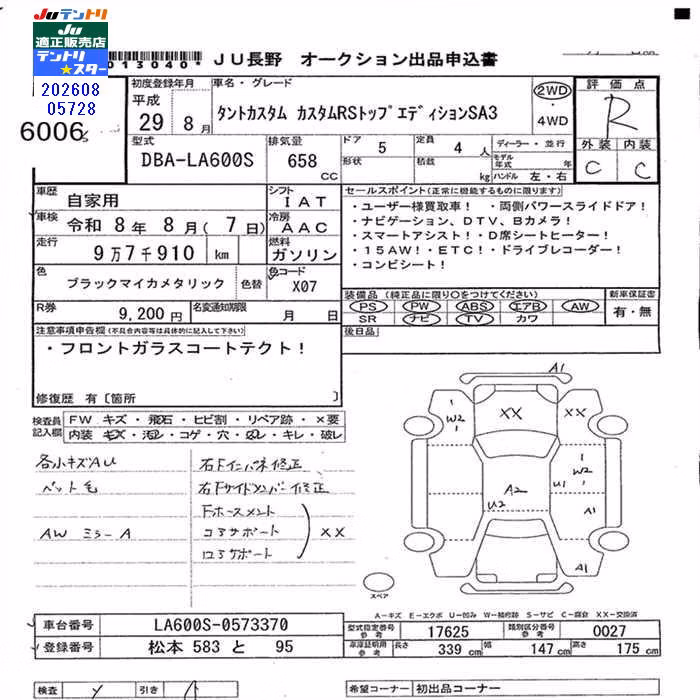 JUテントリ
JU
適正販売店
テントリ
★スター
013040*
JU長野 オークション出品申込書
202608
05728
6006
初度登録年月
平成
29 8月
車名・グレード
タントカスタム カスタムRSトップエディションSA3
2WD
・
4WD
評価点
R
外装 内装
C C
型式
DBA-LA600S
排気量
658
CC
ドア
5
形状
定員
4人
積載
kg
ディーラー・並行
モデル年式 年
ハンドル 左・右
車歴
自家用
シフト
IAT
車検
令和 8年 8月( 7日)
冷房
AAC
走行
9万7千910 km
燃料
ガソリン
色
ブラックマイカメタリック
色替
色コード
X07
R券
9,200円
名変通知期限
月 日
セールスポイント(正常に機能するものに限ります)
・ユーザー様買取車!・両側パワースライドドア!
・ナビゲーション、DTV、Bカメラ!
・スマートアシスト!・D席シートヒーター!
・15AW!・ETC!・ドライブレコーダー!
・コンビシート!
装備品(純正品に限り○をつけてください)
PS PW ABS エアB AW
SR ナビ TV カワ
新車保証書
有・無
後日品
注意事項申告欄(不具合内容等は具体的に記入して下さい)
・フロントガラスコートテクト!
修復歴 有〔箇所 〕
検査員
記入欄
FW キズ・飛石・ヒビ割・リペア跡・×要
内装 キズ・汚レ・コゲ・穴・スレ・キレ・破レ
各小キズAU
ペット毛
AW ミラーA
右Fインパネ修正
右Fサイドメンバー修正
Fホースメント
コアサポート
ロアサポート
XX
A1
W2
XX
W2
U1
A2
U2
A1
A1
スペア
A-キズ E-エクボ U-凹み W-補修跡 S-サビ C-腐食 XX-交換済
車台番号
LA600S-0573370
登録番号
松本 583 と 95
型式指定番号
参考
17625
類別区分番号
参考
0027
車庫証明用
参考
長さ 339 cm 幅 147 cm 高さ 175 cm
検査
引き
希望コーナー
初出品コーナー